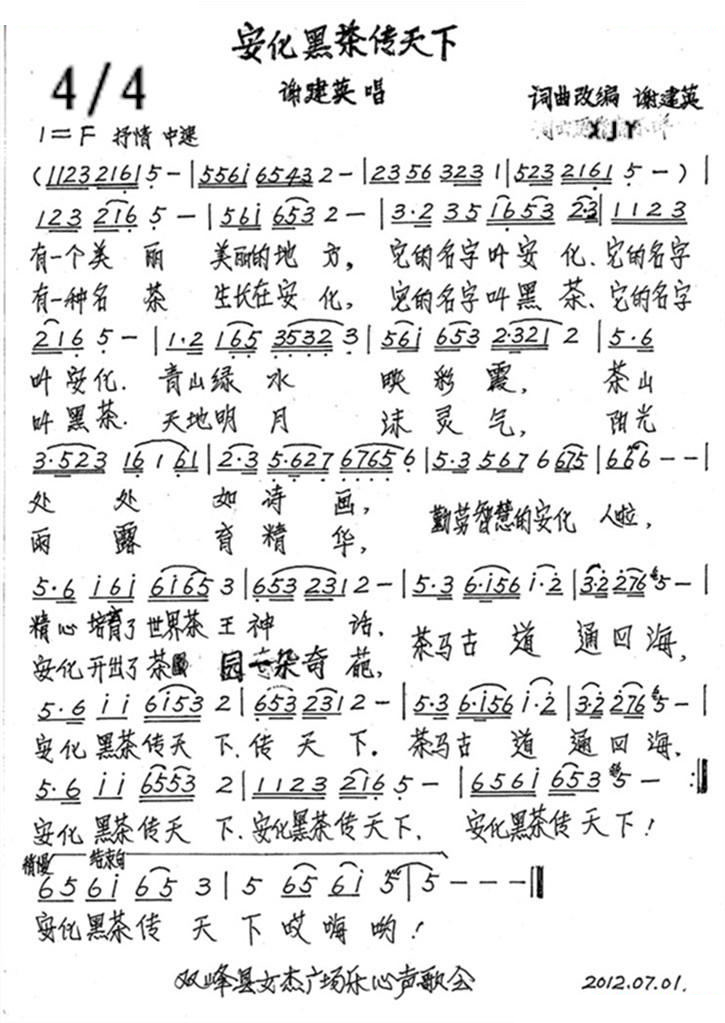 安化黑茶传天下
4/4
谢建英 唱
词曲改编 谢建英
XJY
1=F 抒情 中速
(1123 2161 5 - | 556i 6543 2 - | 2356 323 1 | 523 2161 5 - ) |
123 216 5 - | 561 653 2 - | 3·2 35 i653 2·3 | 1123
有一个美 丽 美丽的地 方, 它的名字叶安 化、它的名字
有一种名 茶 生长在安 化, 它的名字叫黑 茶、它的名字
216 5 - | 1·2 165 3532 3 | 56i 653 2·321 2 | 5·6
叶安化. 青山绿 水 映 彩 霞, 茶山
叫黑茶. 天地明 月 沫 灵 气, 阳光
3·523 16 1 61 | 2·3 5·627 6765 6 | 5·3 567 6 675 | 666 - - |
处 处 如 诗 画, 勤劳智慧的安化 人啦,
雨 露 育 精 华,
5·6 i6i 6i65 3 | 653 231 2 - | 5·3 6·i56 i·2 | 3·2 276 5 - |
精心培育了世界茶 王 神 话, 茶马古 道 通回海,
安化开出了茶 园一朵奇 葩,
5·6 i i 6i53 2 | 653 231 2 - | 5·3 6·i56 i·2 | 3·2 276 5 - |
安化黑茶传天 下.传 天 下. 茶马古 道 通回海.
5·6 i i 6553 2 | 1123 216 5 - | 656i 653 5 - :||
安化黑茶传天 下.安化黑茶传天下. 安化黑茶传天下!
稍慢 结束句
65 6i 65 3 | 5 65 6i 5 | 5 - - - ||
安化黑茶传 天 下哎 嗨 哟!
双峰县文杰广场乐心声歌会 2012.07.01.